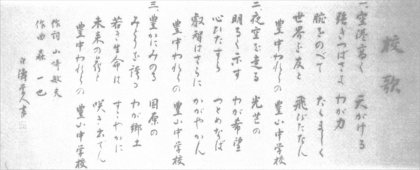 校歌
一、空港高く 天がける
強きつばさよ わが力
腕をのべて たくましく
世界を友と 飛びたたん
豊中われらの 豊山中学校
二、夜空を走る 光芒の
明るく示す わが希望
心ひたすら つとめなば
叡智はさらに かがやかん
豊中われらの 豊山中学校
三、豊かにみのる 国原の
みどりを誇る わが郷土
若き生命は すこやかに
未来の花と 咲き出でん
豊中われらの 豊山中学校
作詞 山崎敏夫
作曲 森一也